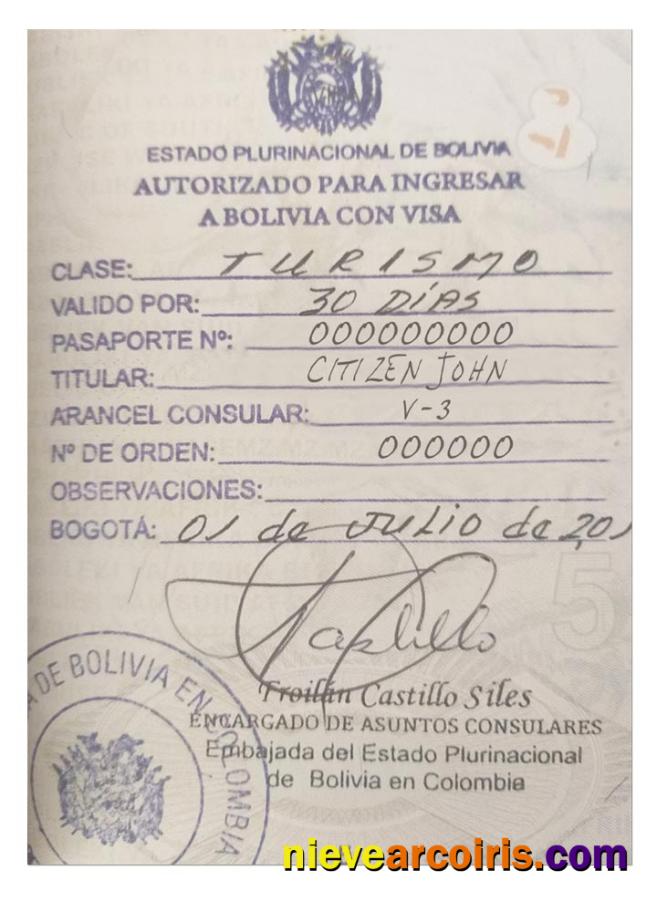 ESTADO PLURINACIONAL DE BOLIVIA
AUTORIZADO PARA INGRESAR
A BOLIVIA CON VISA
CLASE: TURISMO
VALIDO POR: 30 DÍAS
PASAPORTE Nº: 000000000
TITULAR: CITIZEN JOHN
ARANCEL CONSULAR: V-3
Nº DE ORDEN: 000000
OBSERVACIONES:
BOGOTÁ: 01 de JULIO de 201
5
Castillo
Troilán Castillo Siles
ENCARGADO DE ASUNTOS CONSULARES
Embajada del Estado Plurinacional
de Bolivia en Colombia
DE BOLIVIA EN COLOMBIA
nievearcoiris.com